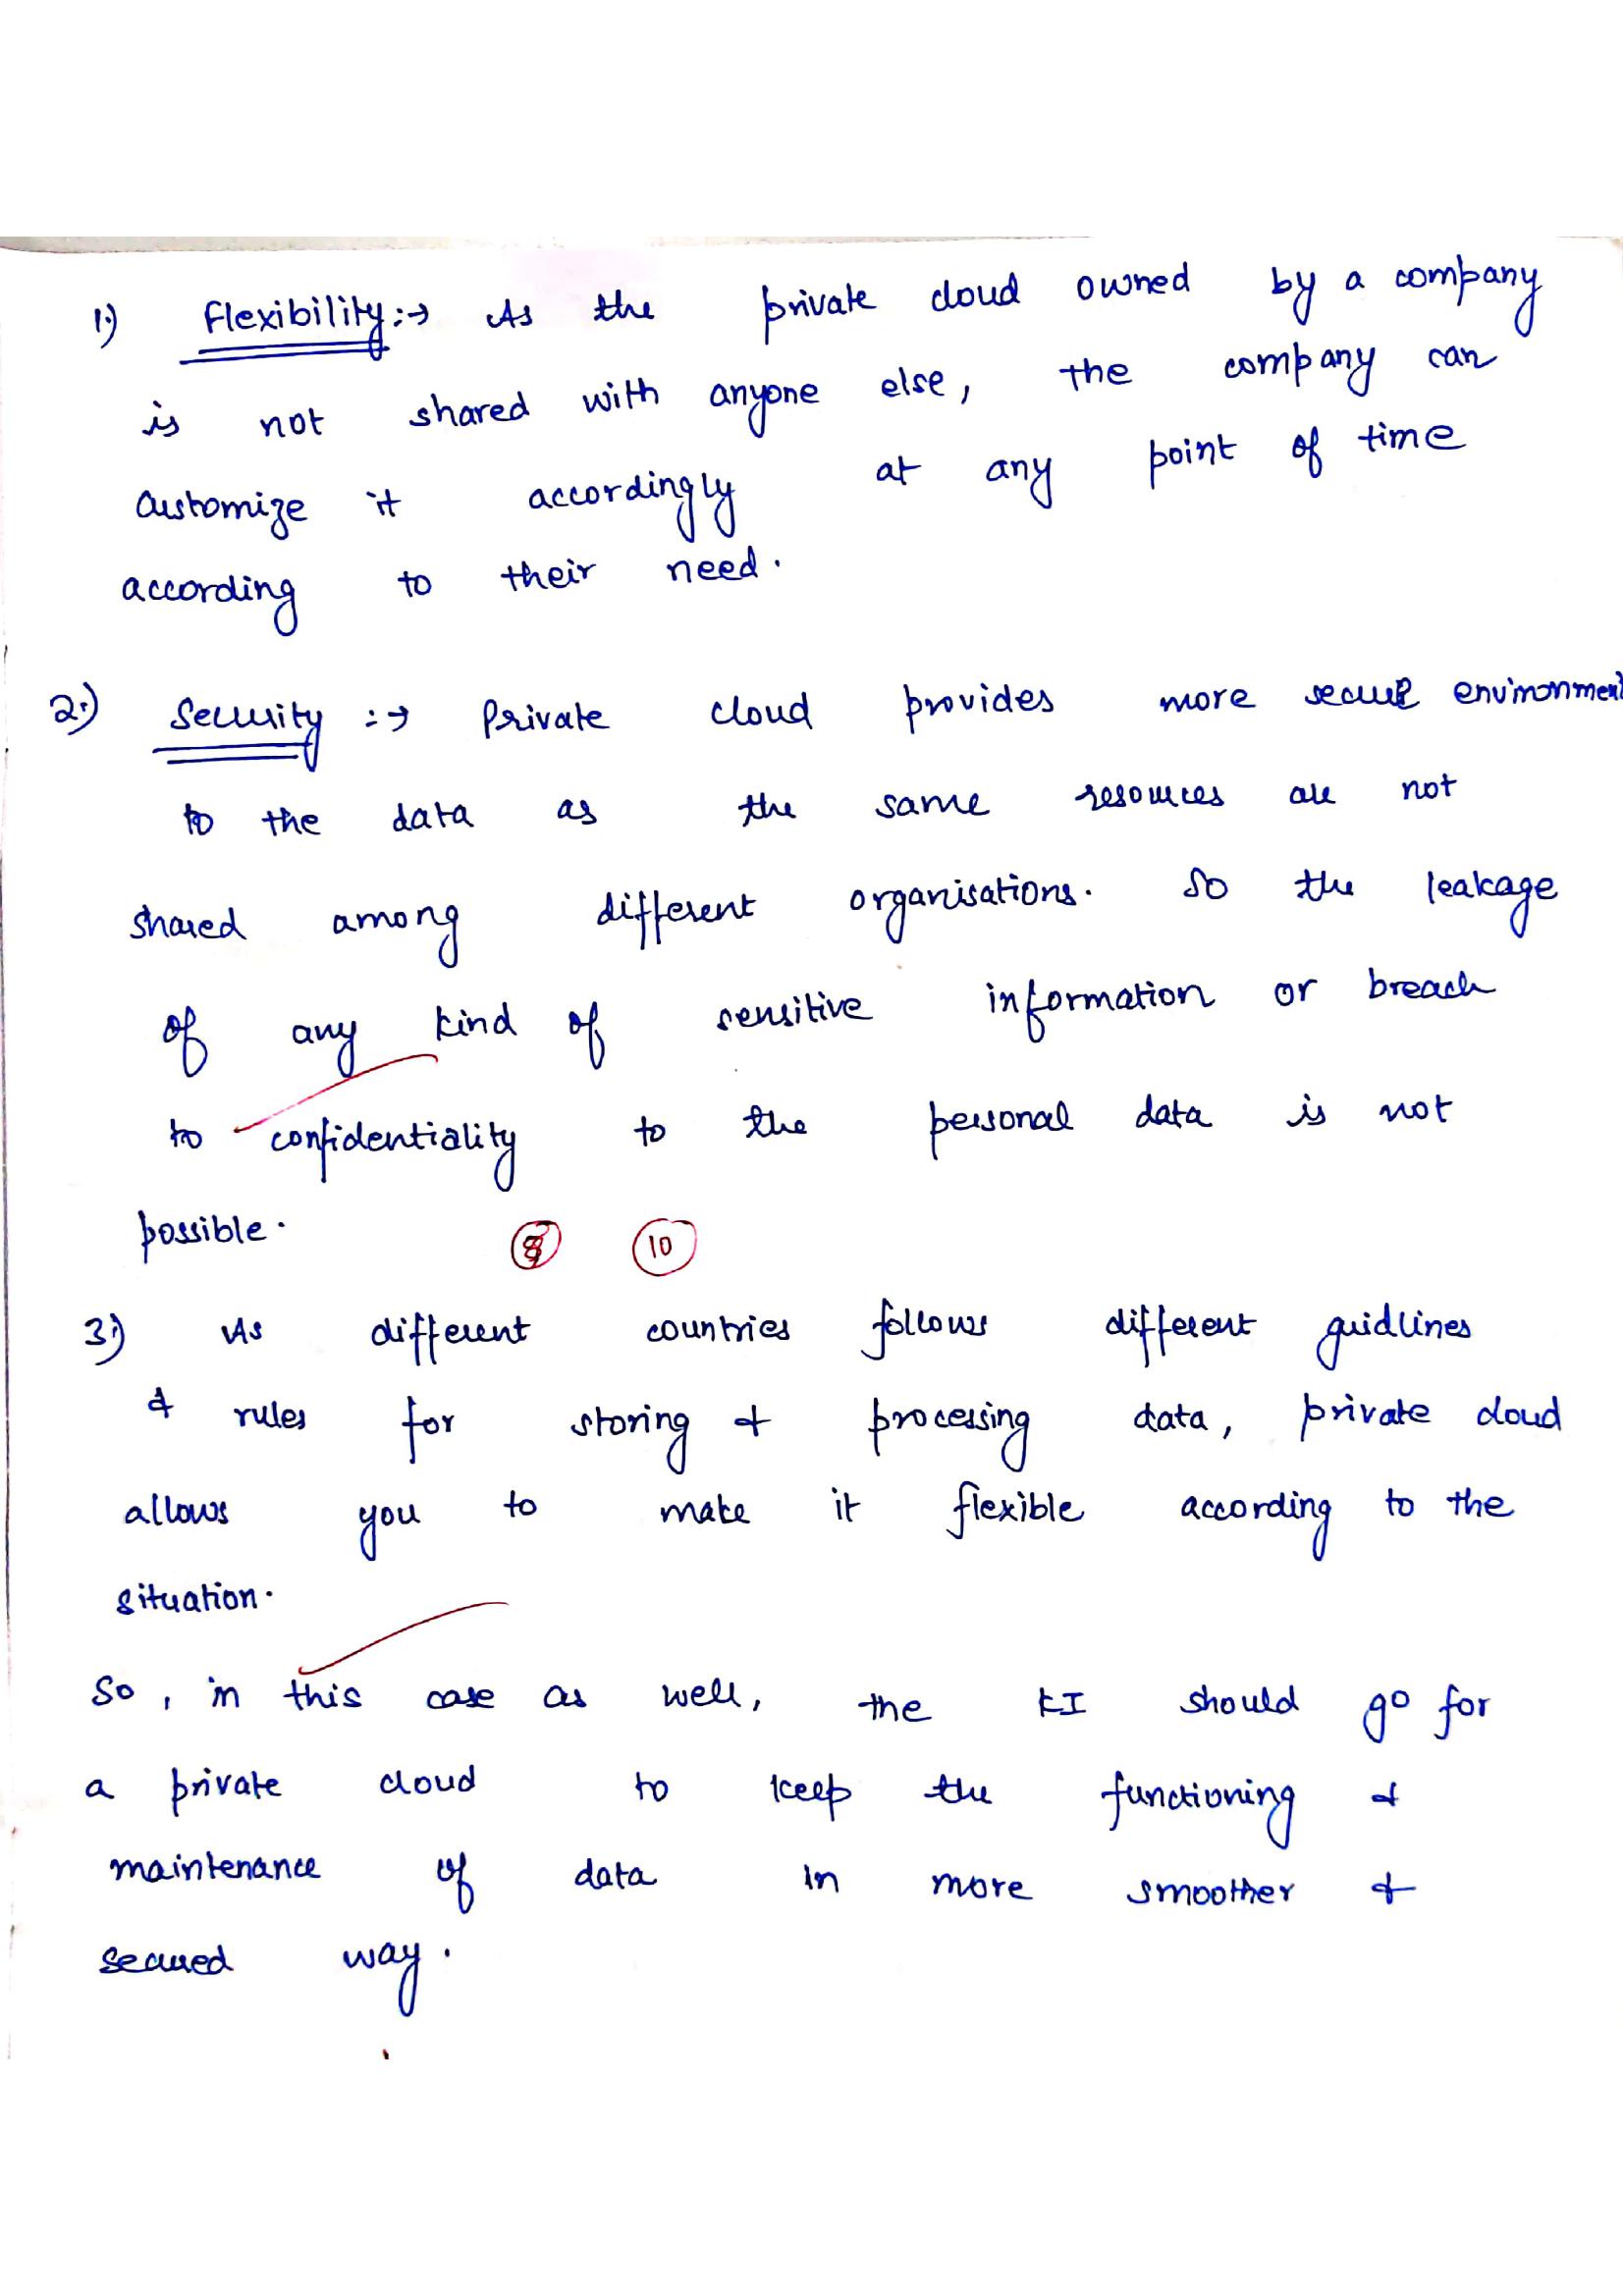 1.) Flexibility :→ As the private cloud owned by a company
is not shared with anyone else, the company can
customize it accordingly at any point of time
according to their need.
2.) Security :→ Private cloud provides more secure environment
to the data as the same resources are not
shared among different organisations. So the leakage
of any kind of sensitive information or breach
to confidentiality to the personal data is not
possible.
10
3.) As different countries follows different guidlines
& rules for storing & processing data, private cloud
allows you to make it flexible according to the
situation.
So, in this case as well, the KI should go for
a private cloud to keep the functioning &
maintenance of data in more smoother &
secured way.